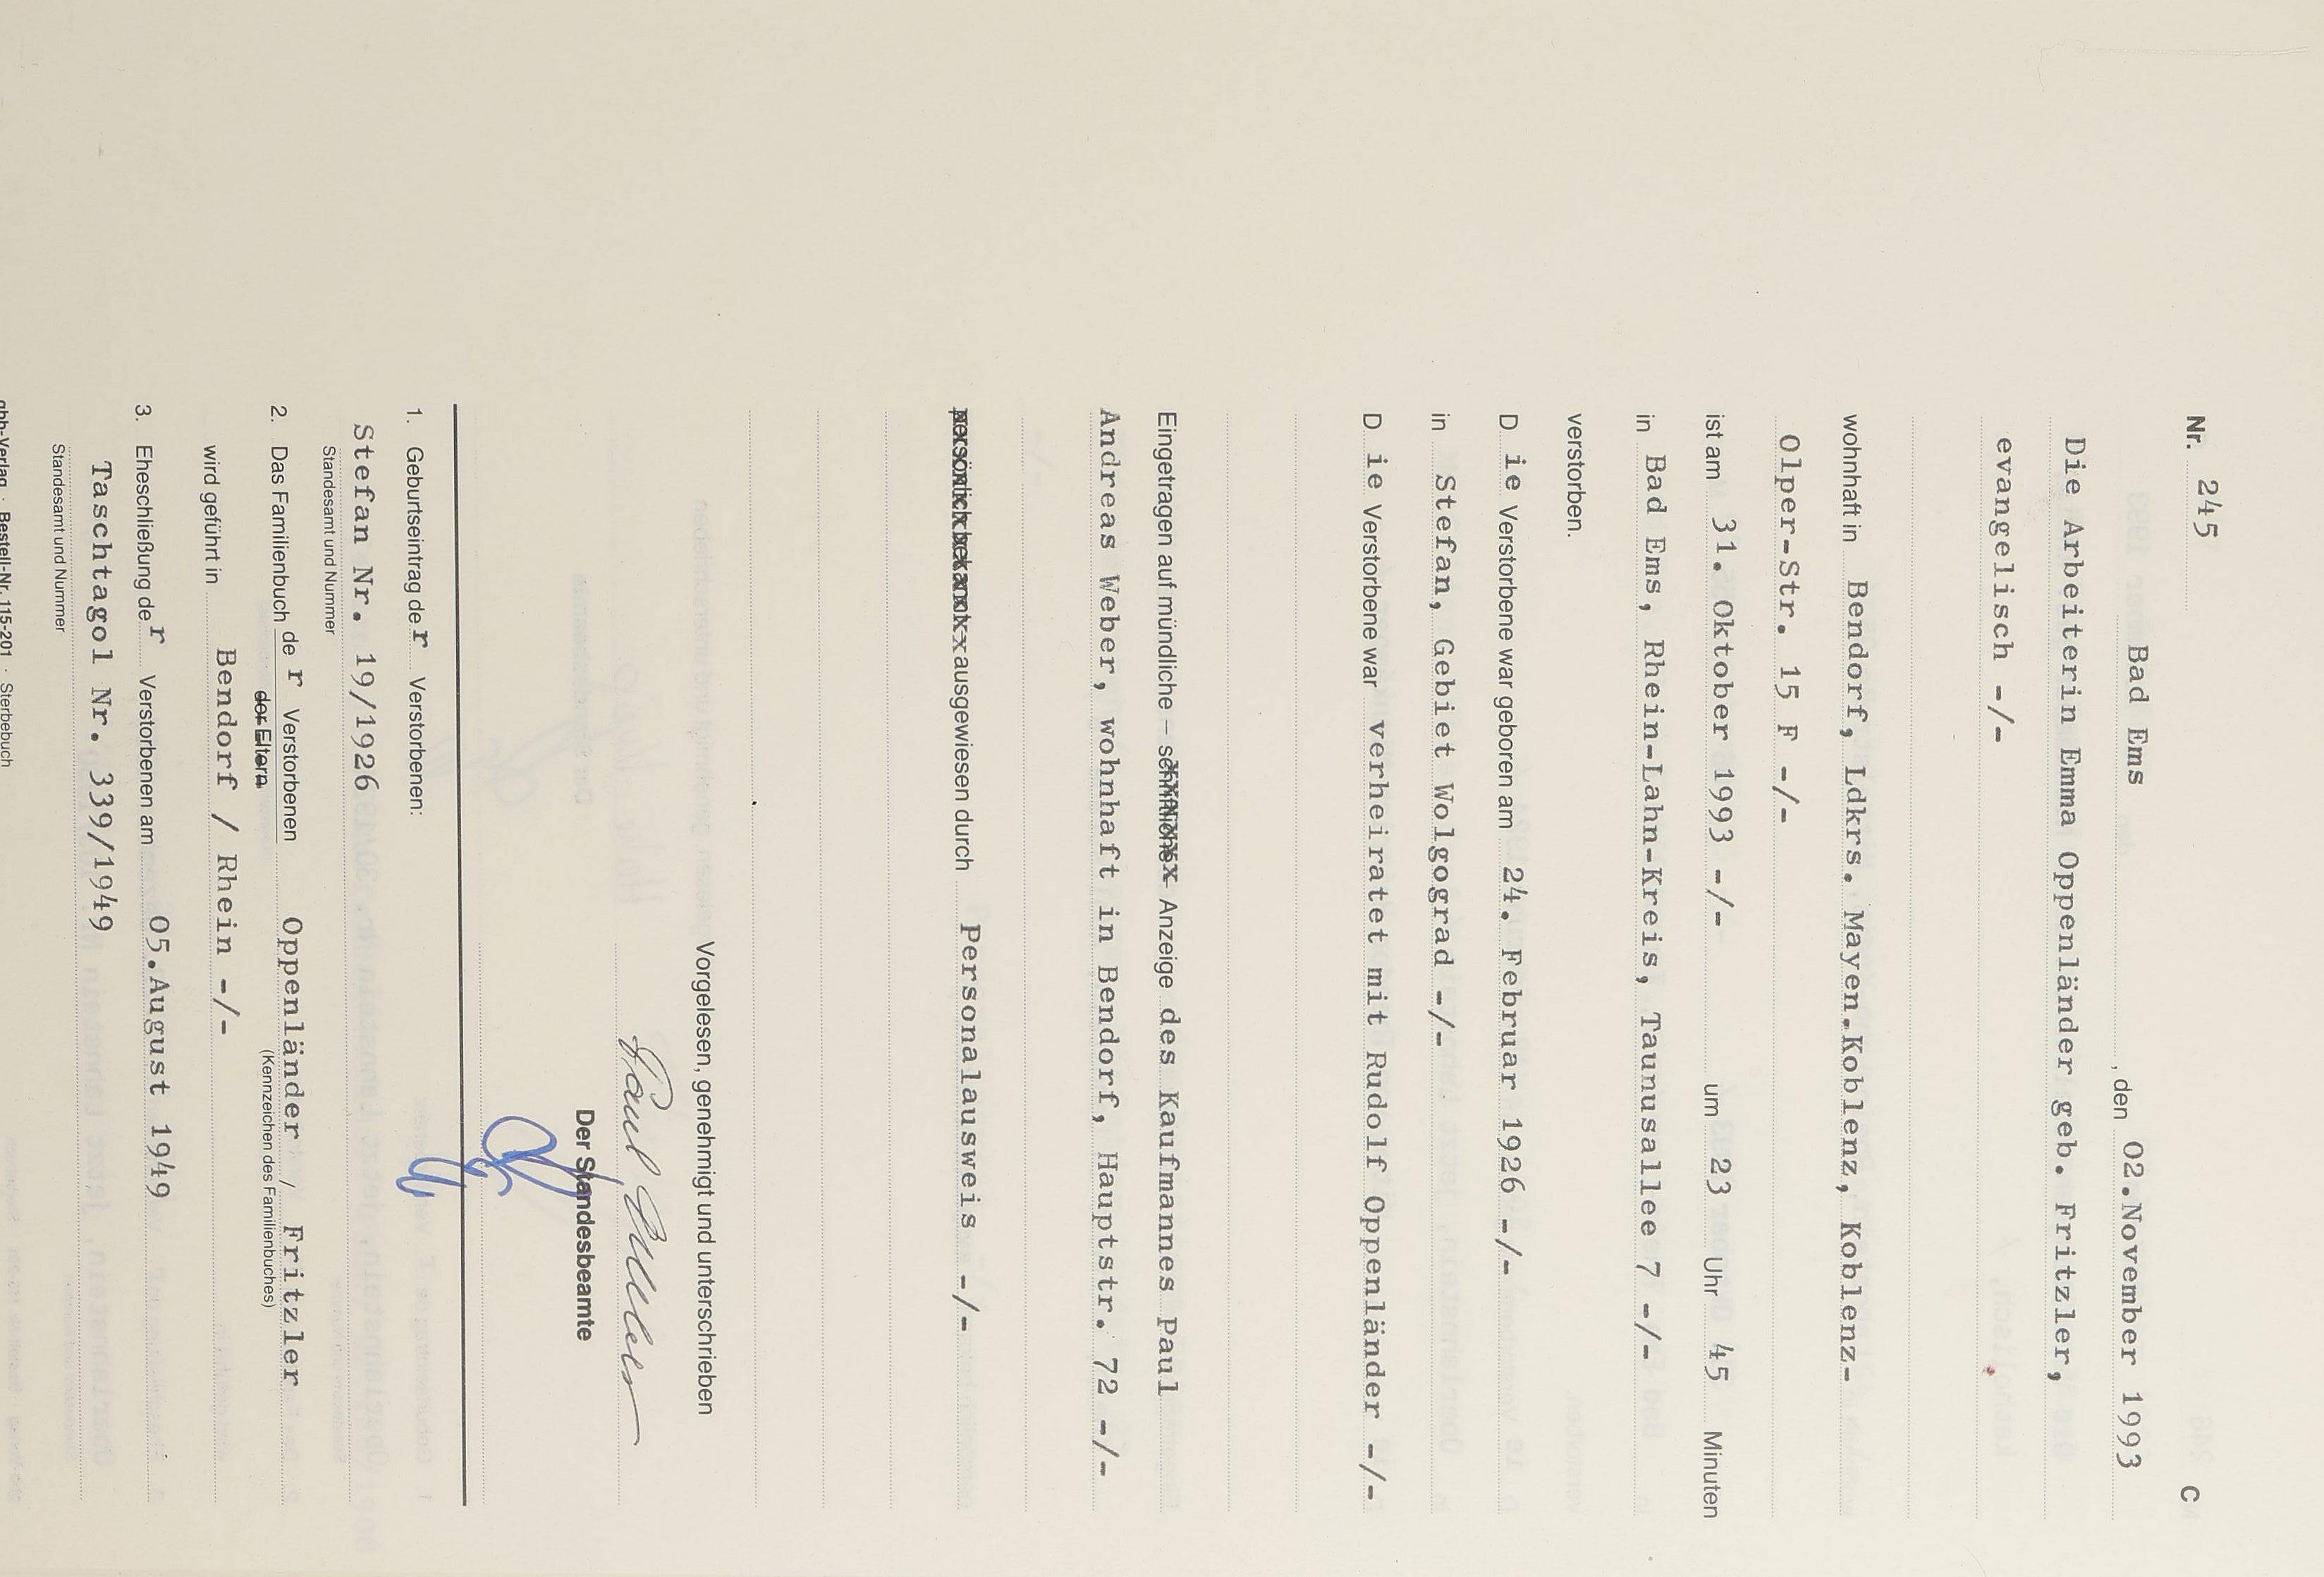 Nr. 245 C
Bad Ems, den 02.November 1993
Die Arbeiterin Emma Oppenländer geb. Fritzler,
evangelisch -/-
wohnhaft in Bendorf, Ldkrs. Mayen.Koblenz, Koblenz-
Olper-Str. 15 F -/-
ist am 31. Oktober 1993 -/- um 23 Uhr 45 Minuten
in Bad Ems, Rhein-Lahn-Kreis, Taunusallee 7 -/-
verstorben.
D ie Verstorbene war geboren am 24. Februar 1926 -/-
in Stefan, Gebiet Wolgograd -/-
D ie Verstorbene war verheiratet mit Rudolf Oppenländer -/-
Eingetragen auf mündliche – schriftliche Anzeige des Kaufmannes Paul
Andreas Weber, wohnhaft in Bendorf, Hauptstr. 72 -/-
persönlich bekannt ausgewiesen durch Personalausweis -/-
Vorgelesen, genehmigt und unterschrieben
Paul
Der Standesbeamte
1. Geburtseintrag der Verstorbenen:
Stefan Nr. 19/1926
Standesamt und Nummer
2. Das Familienbuch de r Verstorbenen Oppenländer / Fritzler
der Eltern (Kennzeichen des Familienbuches)
wird geführt in Bendorf / Rhein -/-
3. Eheschließung der Verstorbenen am 05.August 1949
Taschtagol Nr. 339/1949
Standesamt und Nummer
gbb-Verlag · Bestell-Nr. 115-201 · Sterbebuch